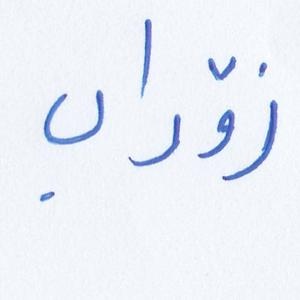 زۆراب